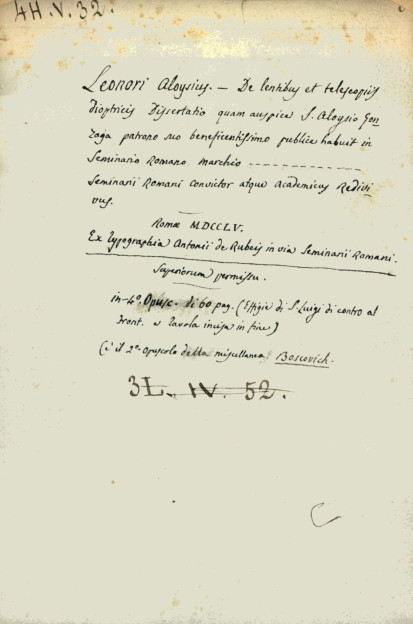 4H.V.32.
Leonori Aloysius. — De lentibus et telescopiis
dioptricis Dissertatio quam auspice S. Aloysio Gon
zaga patrono suo beneficentissimo publice habuit in
Seminario Romano marchio
Seminarii Romani convictor atque Academicus Redivi
vus.
Romæ MDCCLV.
Ex Typographia Antonii de Rubeis in via Seminarii Romani.
Superiorum permissu.
in-4º. Opusc. di 60 pag. (Effigie di S. Luigi di contro al
front. e tavola incisa in fine)
(è il 2º. opuscolo della miscellanea Boscovich.
3L. IV. 52.